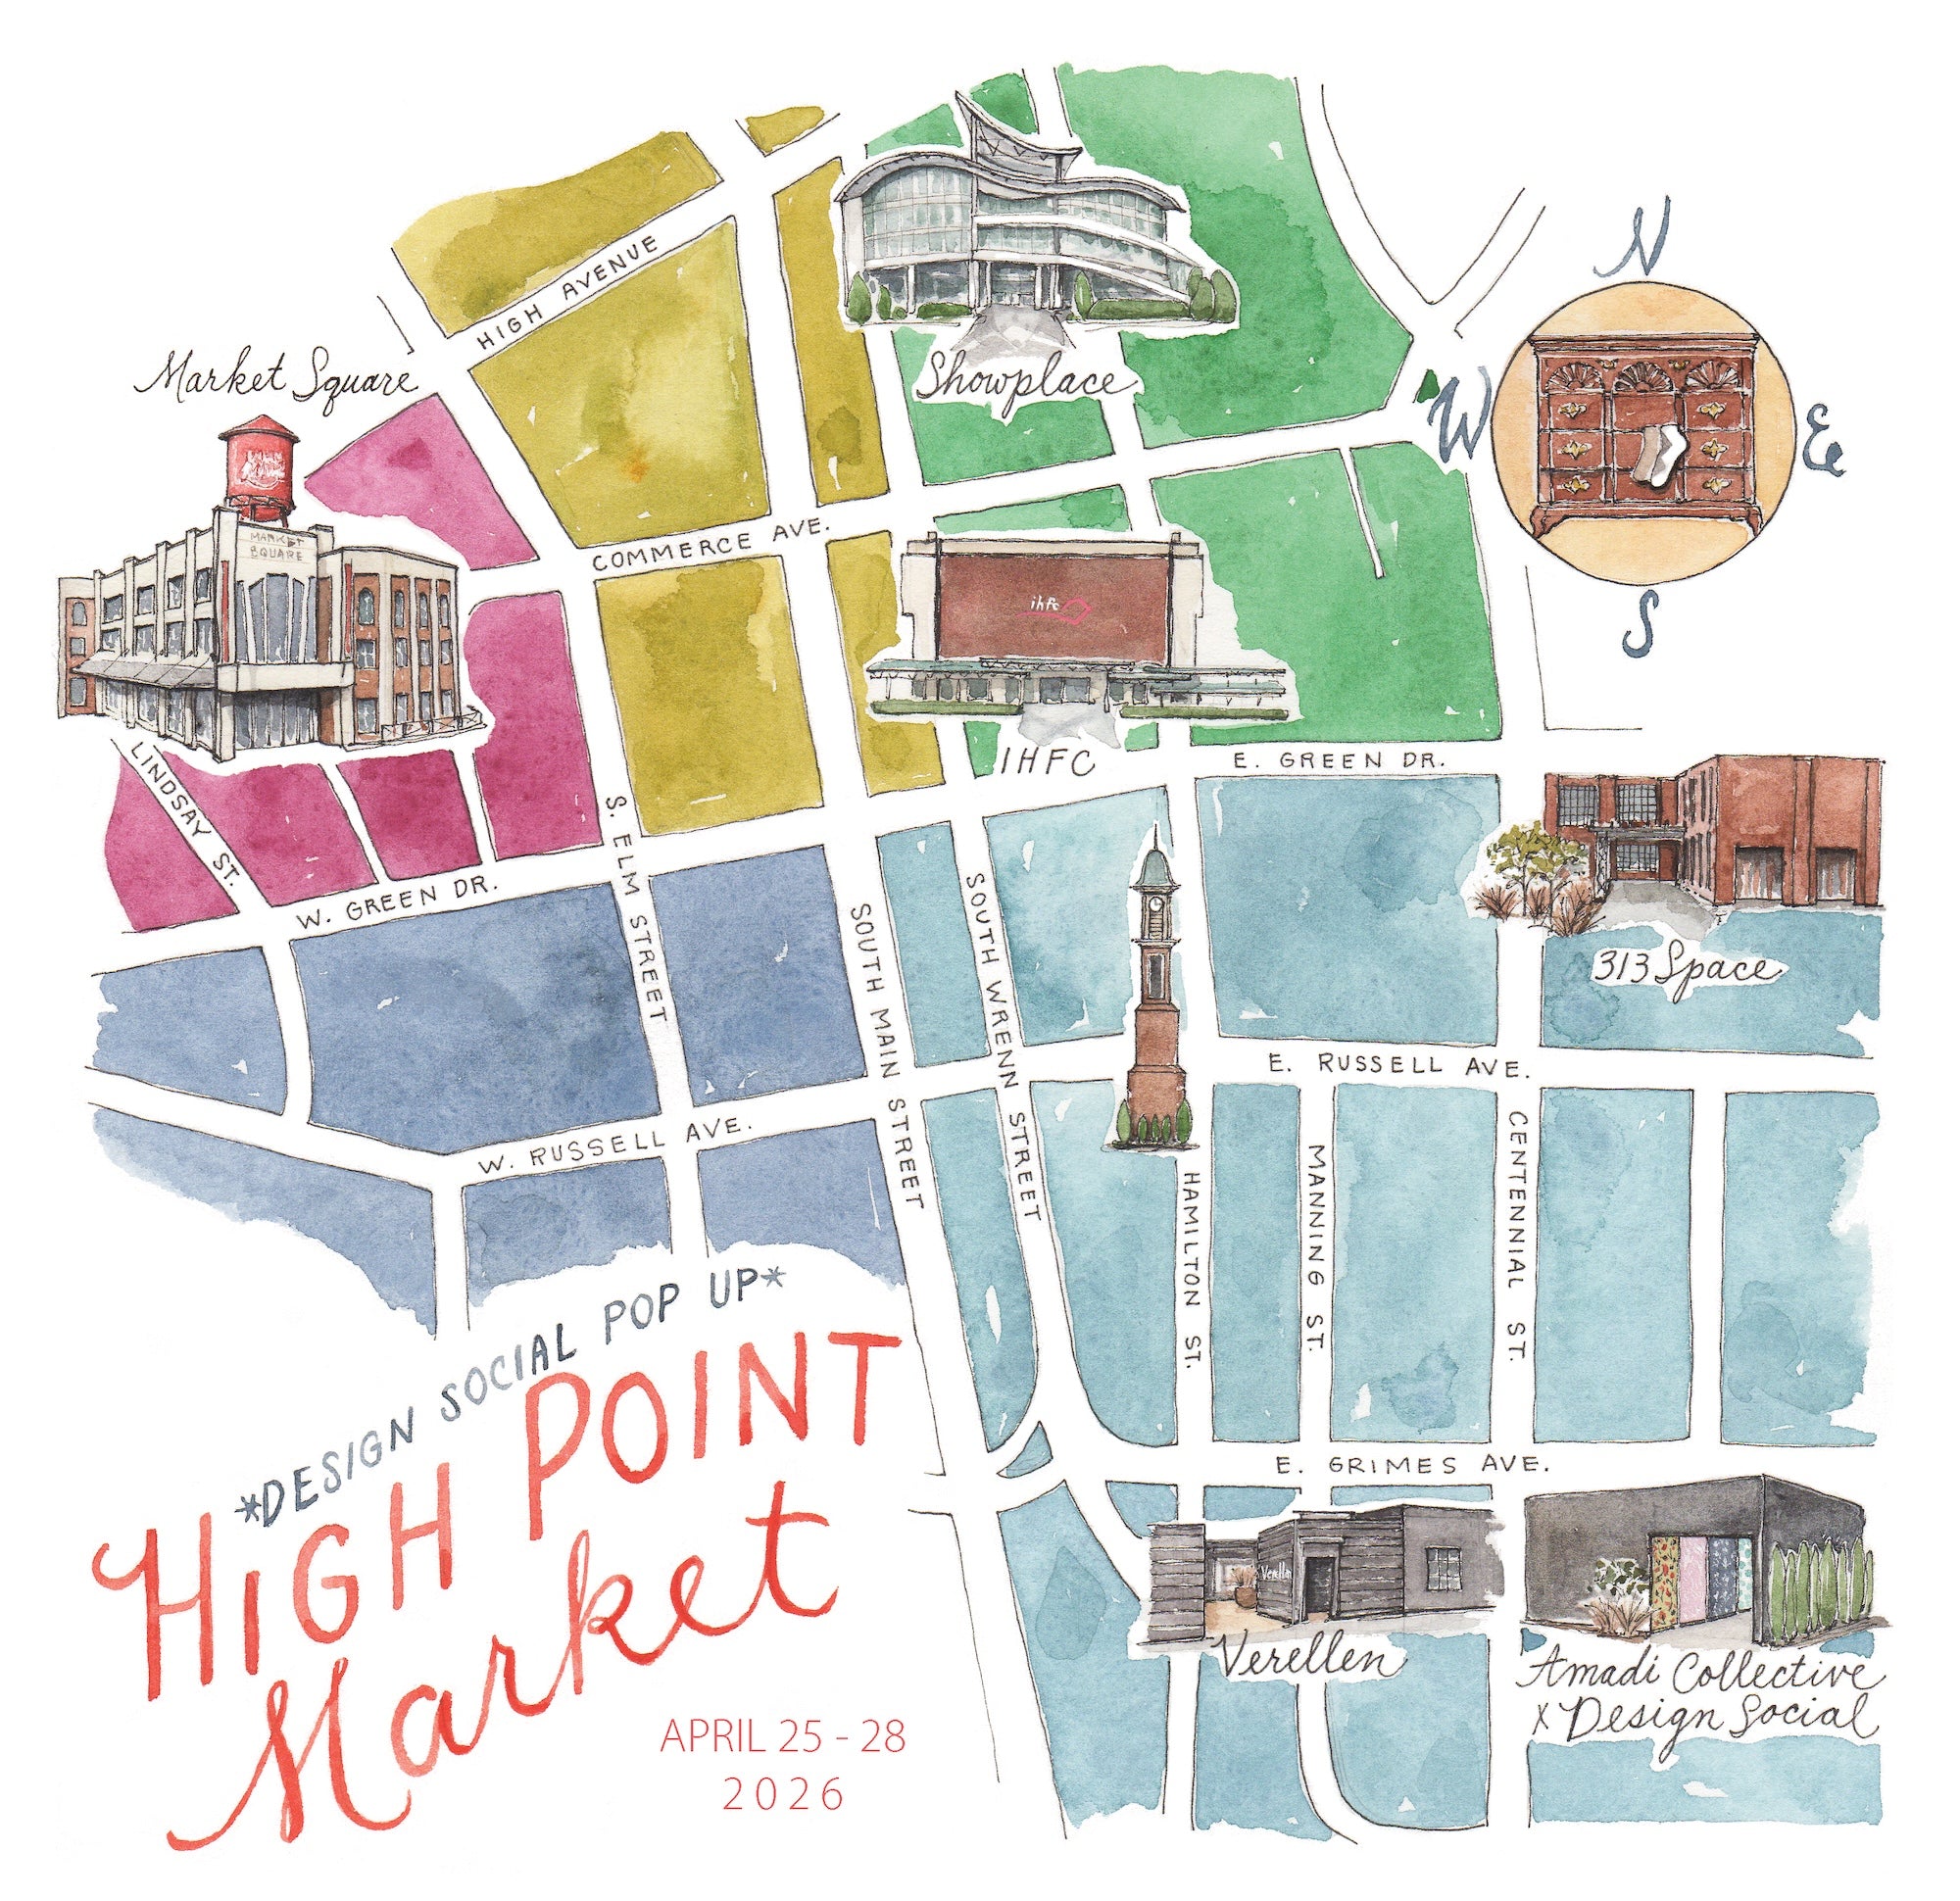 N
HIGH AVENUE
Market Square
Showplace
W
E
COMMERCE AVE.
MARKET
SQUARE
ihfc
S
IHFC
E. GREEN DR.
LINDSAY ST.
W. GREEN DR.
S. ELM STREET
SOUTH MAIN STREET
SOUTH WRENN STREET
313 Space
E. RUSSELL AVE.
W. RUSSELL AVE.
HAMILTON ST.
MANNING ST.
CENTENNIAL ST.
*DESIGN SOCIAL POP UP*
HIGH POINT
Market
APRIL 25 - 28
2026
E. GRIMES AVE.
Verellen
Verellen
Amadi Collective
x Design Social